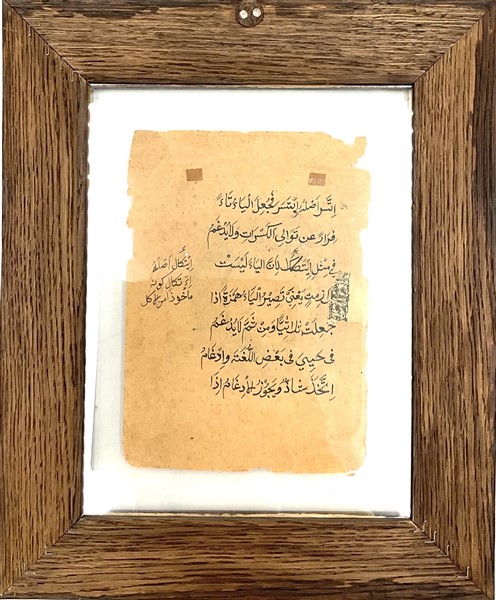 اِتَّسَرَ اَصْلُهُ اِيْتَسَرَ فَجُعِلَ الْيَاءُ تَاءً
فِرَارًا عَنْ تَوَالِي الْكَسَرَاتِ وَلَا يُدْغَمُ
فِي مِثْلِ اِيتَكَلَ لِاَنَّ الْيَاءَ لَيْسَتْ
بِلَازِمَةٍ يَعْنِي تَصِيْرُ الْيَاءُ هَمْزَةً اِذَا
جَعَلْتَ ثُلَاثِيًّا وَمِنْ ثَمَّ لَا يُدْغَمُ
فِي حَيِيَ فِي بَعْضِ اللُّغَةِ وَاِدْغَامُ
اِتَّخَذَ شَاذٌّ وَيَجُوْزُ الْاِدْغَامُ اِذَا
ايتكال اصله
مأخوذ من اكل